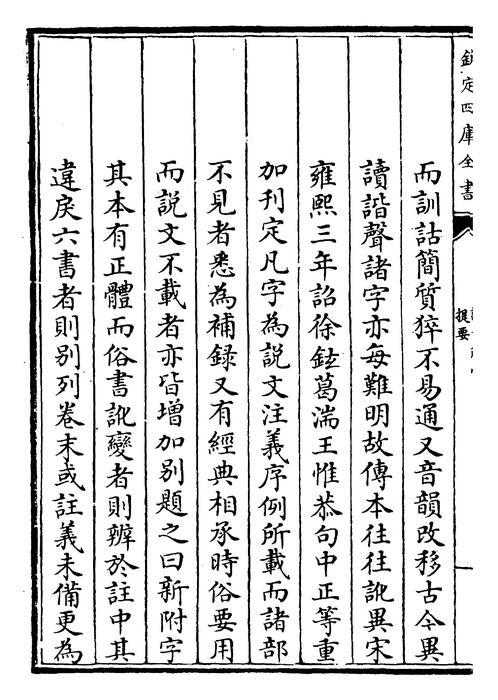 欽定四庫全書
提要
而訓詁簡質猝不易通又音韻改移古今異
讀諧聲諸字亦每難明故傳本往往訛異宋
雍熙三年詔徐鉉葛湍王惟恭句中正等重
加刊定凡字為説文注義序例所載而諸部
不見者悉為補録又有經典相承時俗要用
而説文不載者亦皆增加别題之曰新附字
其本有正體而俗書訛變者則辨於註中其
違戾六書者則别列卷末或註義未備更為